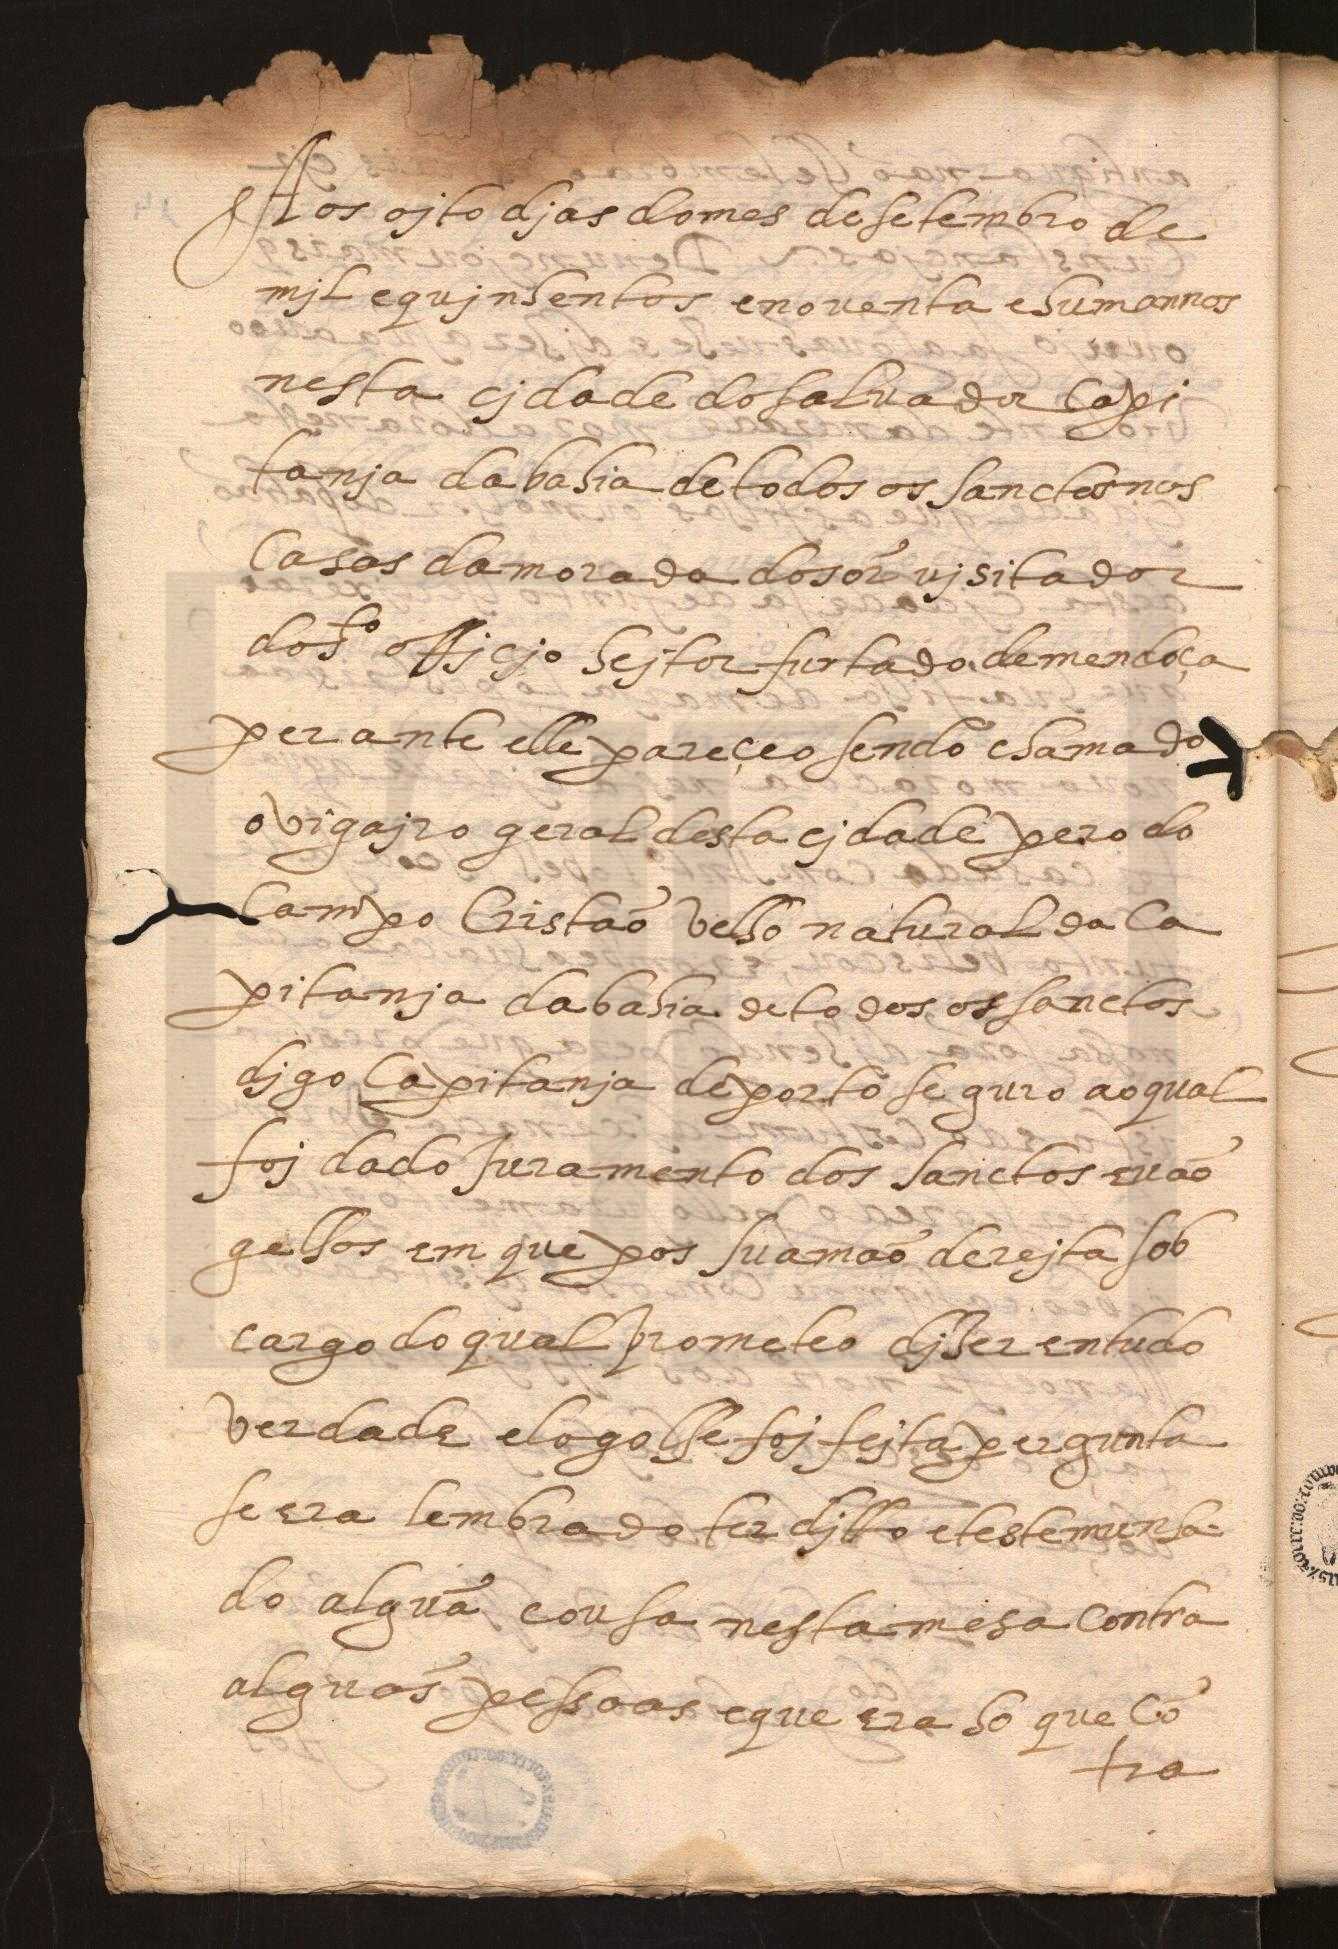 Aos ojto djas do mes de setembro de
mjl e qujnhentos e noventa e hum annos
nesta cjdade do salvador capi
tanja da bahia de todos os sanctos nas
casas da morada do sor vjsitador
do sto officjo hejtor furtado de mendoça
perante elle pareçeo sendo chamado
o vigajro geral desta cjdade pero do
campo cristão velho natural da ca
pitanja da bahia de todos os sanctos
djgo capitanja de porto seguro ao qual
foj dado juramento dos sanctos evão
gelhos em que pos sua mão derejta sob
cargo do qual prometeo djzer em tudo
verdade e logo lhe foj fejta pergunta
se era lembrado ter djtto e testemunha
do algũa cousa nesta mesa contra
alguãs pessoas e que era so que cõ
tra